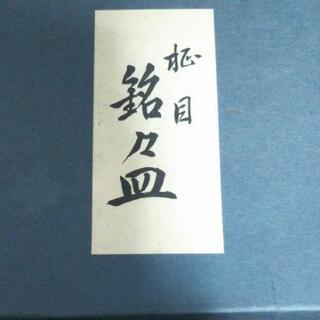 柾目
銘々皿